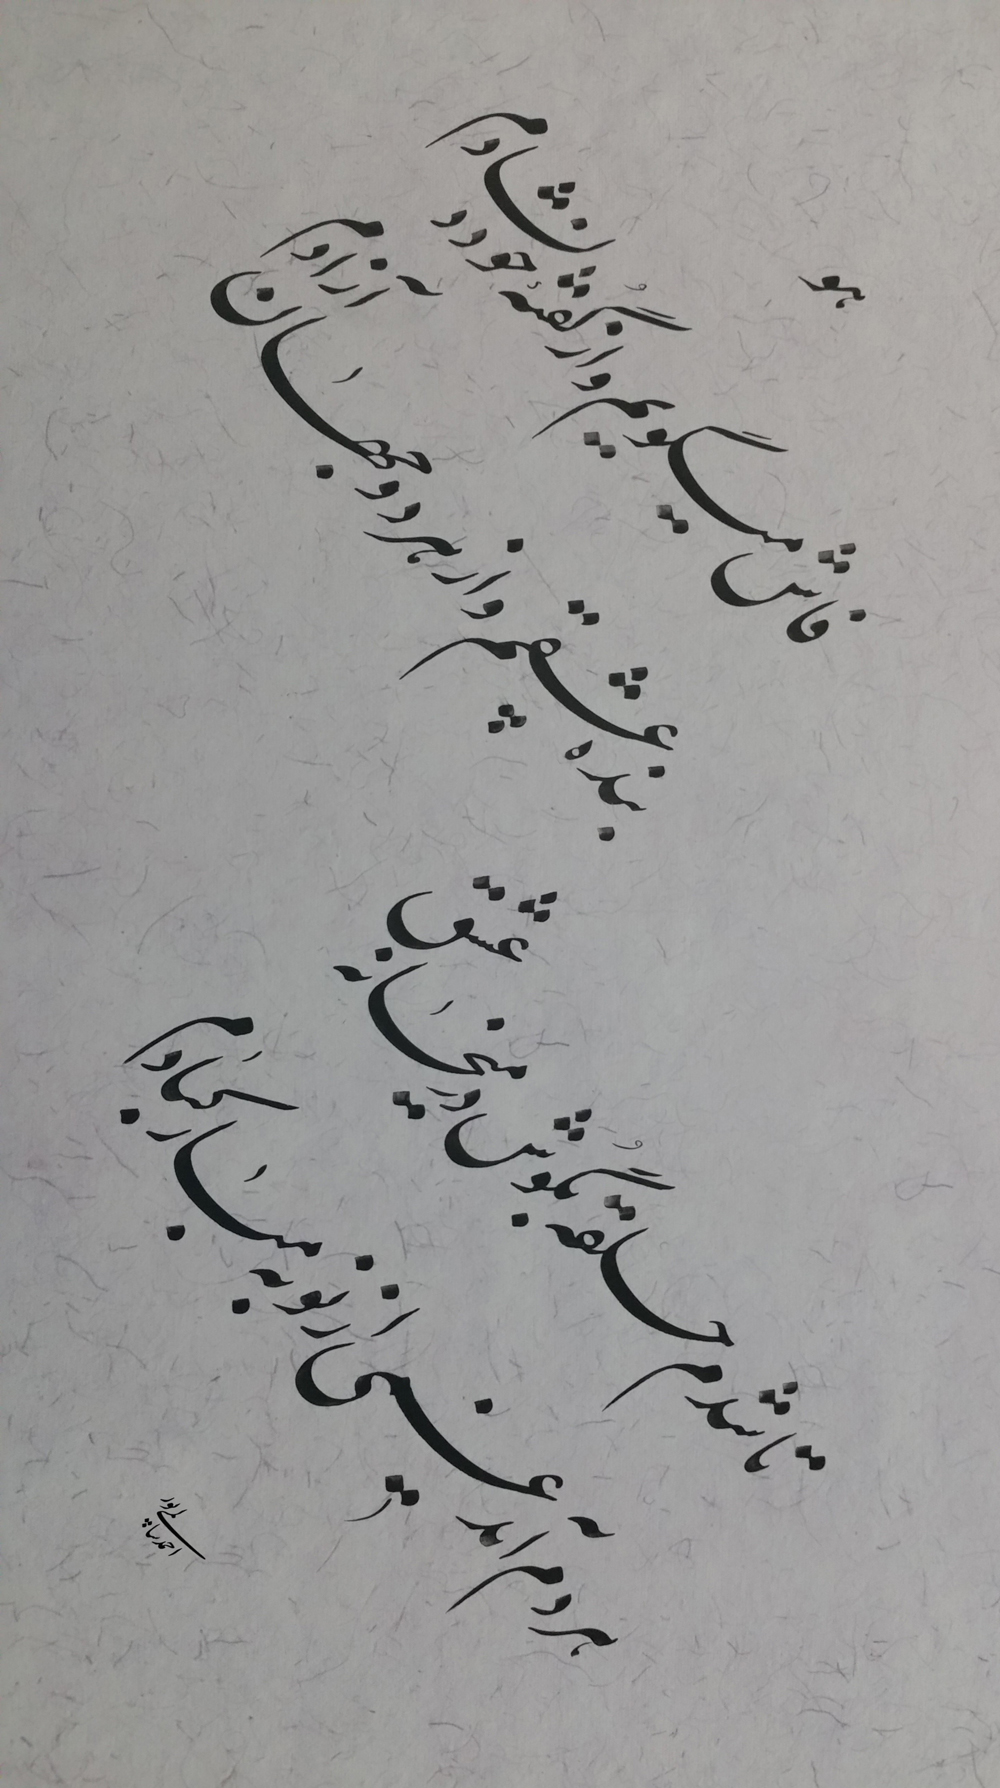 هو
فاش میگویم و از گفتهٔ خود دلشادم
بندهٔ عشقم و از هر دو جهان آزادم
تا شدم حلقه بگوش در میخانه عشق
هر دم آید غمی از نو به مبارکبادم